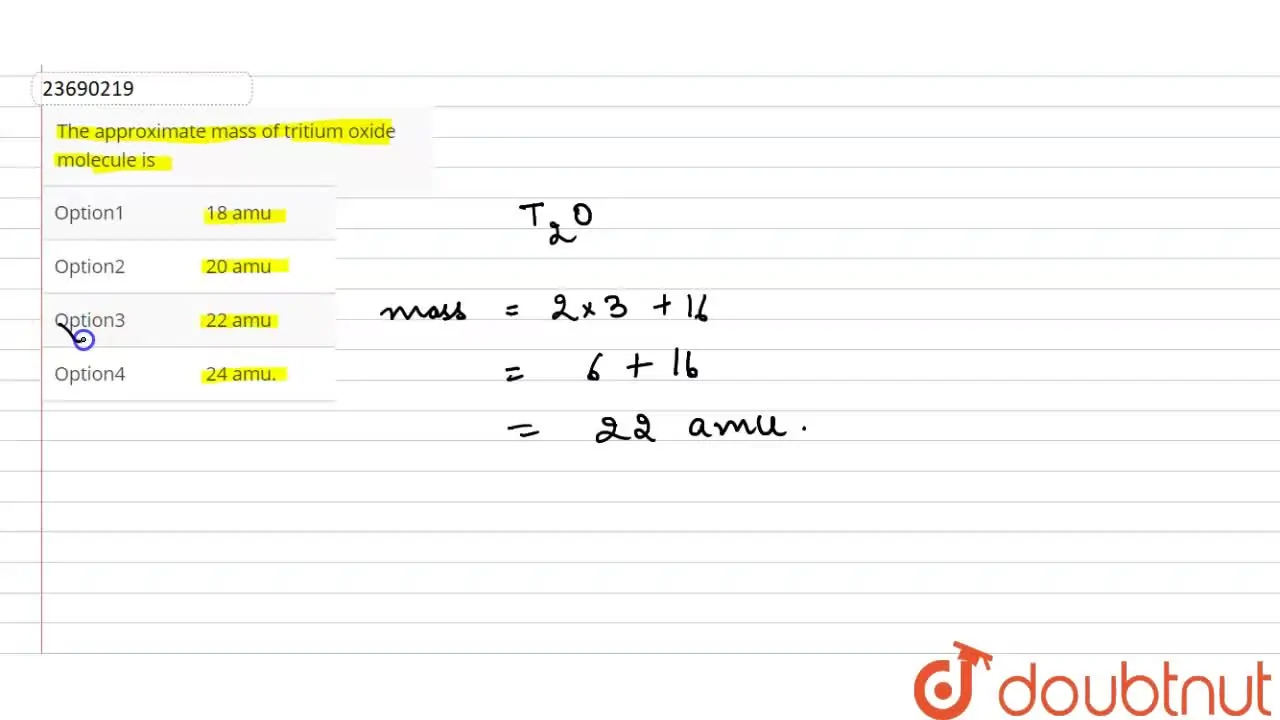 23690219
The approximate mass of tritium oxide
molecule is
Option1 18 amu
Option2 20 amu
Option3 22 amu
Option4 24 amu.
T2O
mass = 2×3 + 16
= 6 + 16
= 22 amu.
doubtnut